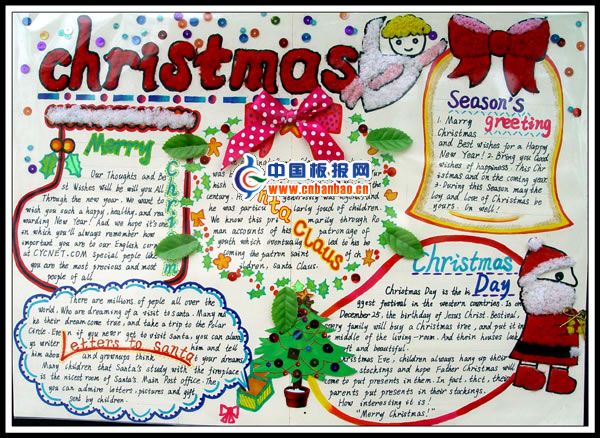 christmas
Merry
Christm
Our Thoughts and Be
st Wishes will be will you All
Through the year. We want to
wish you such a happy, healthy, and rea
warding New Year! And we hope it's one
in which you'll always remember how
important you are to our English corner
at CYCNET.COM Special people like
you are the most precious and most
people of all.
中国板报网
www.cnbanbao.cn
nta
Claus
century. He
and
he was particu larly joud of children.
We know this pri marily through Ro
man accounts of his patronage of
youth which eventually led to his be
coming the patron saint
children, santa Claus.
Season's
greeting
1. Marry
Christmas
and Best wishes for a Happy
New Year! 2. Bring you Good
wishes of happiness. This Chr
istmas and on the coming year
3. During this season may the
joy and Love of Christmas be
yours. On well!
Christmas
Day
Christmas Day is the bi
ggest festival in the western countries. Is on
December 25, the birthday of Jesus Christ. Bestival,
every family will buy a Christmas tree, and put it in
middle of the living-room. And theirin houses look
ful and beautiful.
Christmas Eve, children always hang up their
stockings and hope Father Christmas will
come to put presents in them. In fact, thct, their
parents put presents in their stockings.
How interesting it is!
"Merry Christmas!"
Letters to Santa
There are millions of peple all over the
world. Who are dreaming of a visit to santa. Many ma
ke their dream come true, and take a trip to the Polar
Circle. Even if you never get to visit Santa, you can alway
ys writer him and tell
him about your dreams.
and grownups think
Many children that Santa's study with the fireplace
is the nicest room of Santa's Main Post Office. The
you can admire letters, pictures and gift
sent by children.